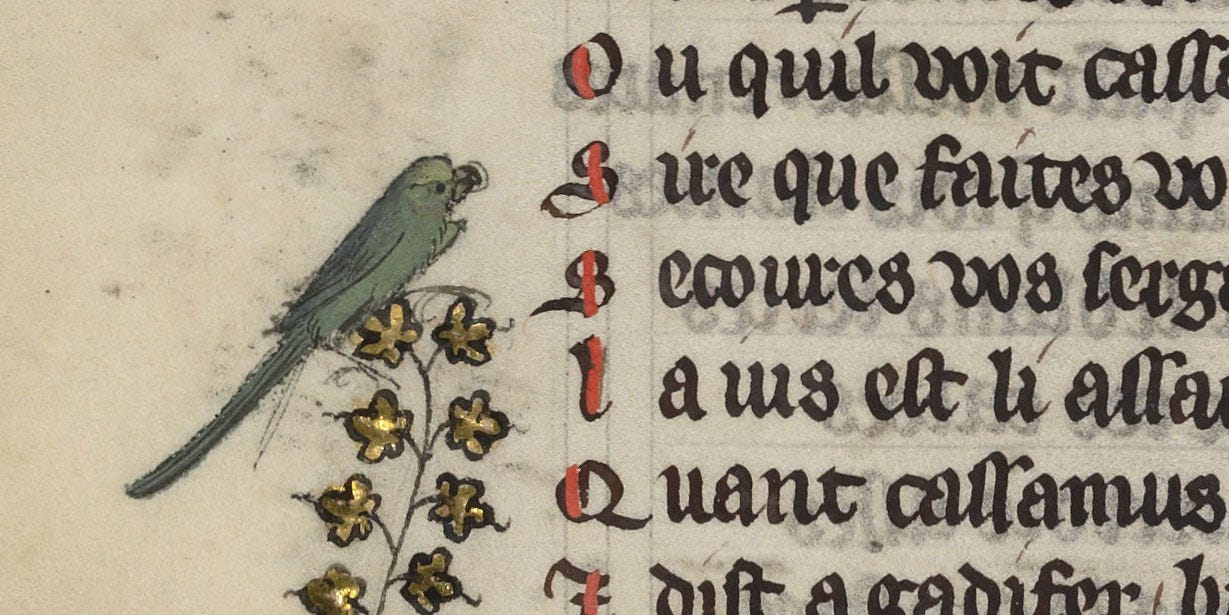 Ou quil voit cassa
Sire que faites vo
Secoures vos serg
La uis est li assa
Quant cassamus
I dist a gadifer h